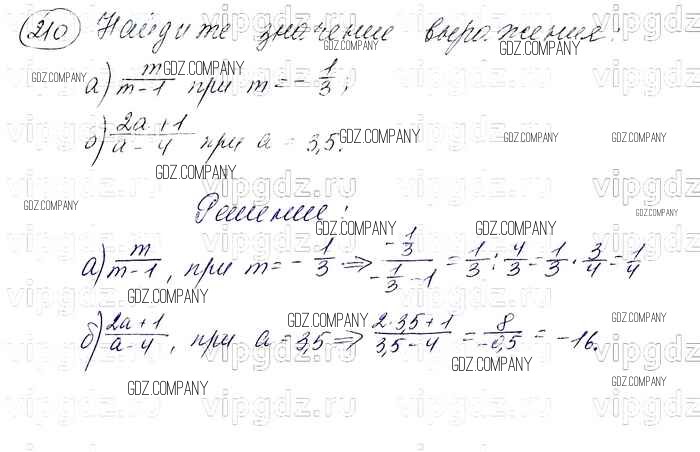 210 Найдите значение выражения:
а) m/(m-1) при m = -1/3;
б) (2a+1)/(a-4) при a = 3,5.
Решение:
а) m/(m-1), при m = -1/3 ⇒ (-1/3)/(-1/3-1) = 1/3 : 4/3 = 1/3 · 3/4 = 1/4
б) (2a+1)/(a-4), при a = 3,5 ⇒ (2·3,5+1)/(3,5-4) = 8/(-0,5) = -16.
GDZ.COMPANY
vipgdz.ru